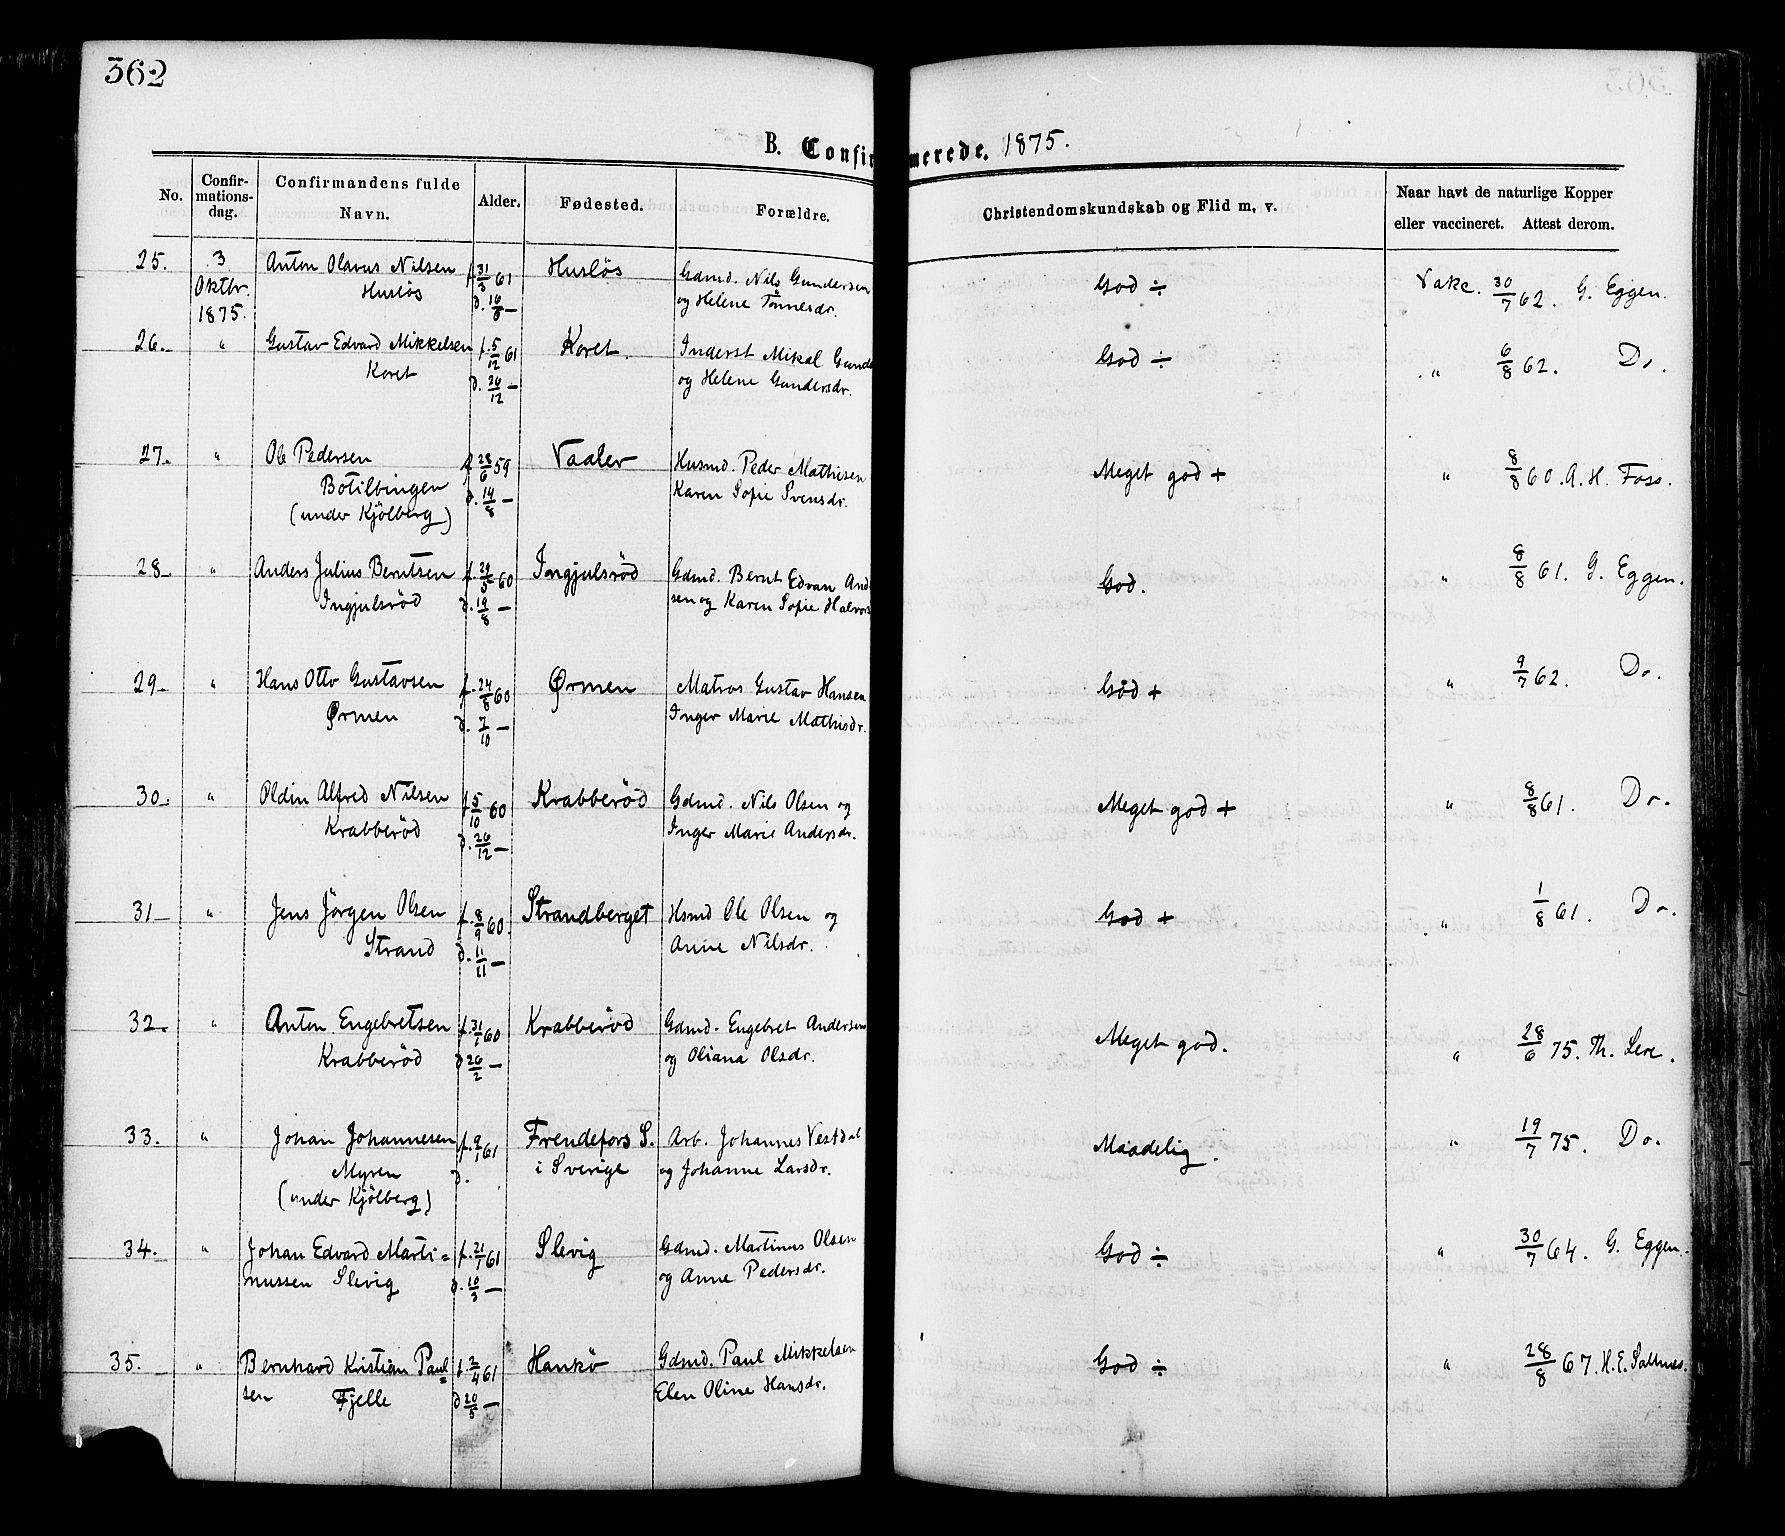 362
B. Confir merede. 1875.
No. Confirmationsdag. Confirmandens fulde Navn. Alder. Fødested. Forældre. Christendomskundskab og Flid m. v. Naar havt de naturlige Kopper eller vaccineret. Attest derom.
25. 3 Anton Olavus Nilsen f. 31/3 61 Husløs Gdmd. Nils Gundersen God ÷ Vakc. 30/7 62. G. Eggen.
Oktbr. Husløs d. 16/8 — og Helene Tönnesdr.
1875.
26. " Gustav Edvard Mikkelsen f. 5/12 61 Koret. Inderst Mikal Gunde God ÷ " 6/8 62. Do.
Koret d. 26/12 — og Helene Gundersdr.
27. " Ole Pedersen f. 28/6 59 Vaaler Husmd. Peder Mathiesen Meget god + " 8/8 60. A. H. Foss.
Botilbingen d. 14/8 — Karen Sofie Svensdr.
(under Kjölberg)
28. " Anders Julius Berntsen f. 29/5 60 Ingjulsröd Gdmd. Bernt Edvan And God. " 8/8 61. G. Eggen.
Ingjulsröd d. 19/8 — sen og Karen Sofie Halvors
29. " Hans Otto Gustavsen f. 24/8 60 Ørmen Matros Gustav Hansen God + " 9/7 62. Do.
Ørmen d. 7/10 — Inger Marie Mathisdr.
30. " Oldin Alfred Nilsen f. 5/10 60 Krabberöd Gdmd. Nils Olsen og Meget god + " 8/8 61. Do.
Krabberöd d. 26/12 — Inger Marie Andersdr.
31 " Jens Jörgen Olsen f. 8/9 60. Strandberget Hsmd Ole Olsen og God + " 1/8 61. Do.
Strand d. 11/11 — Anne Nilsdr.
32. " Anton Engebretsen f. 31/1 60 Krabberöd Gdmd. Engebret Andersen Meget god. " 28/6 75. Th. Lere.
Krabberöd d 26/2 — og Oliana Olsdr.
33. " Johan Johannesen f. 2/1 61 Frendefors S. Arb. Johannes Vestdal Maadelig. " 19/7 75. Do.
Myren d. i Sverige og Johanne Larsdr.
(under Kjölberg)
34. " Johan Edvard Marti= f. 21/1 61 Slevig Gdmd. Martinus Olsen God ÷ " 30/7 64. G. Eggen.
nussen Slevig d. 10/3 — og Anne Pedersdr.
35. " Bernhard Kristian Paul= f. 2/4 61 Hankö Gdmd. Paul Mikkelsen God ÷ " 28/8 67. H. E. Saltnes.
sen Fjelle d 20/5 — Elen Oline Hansdr.